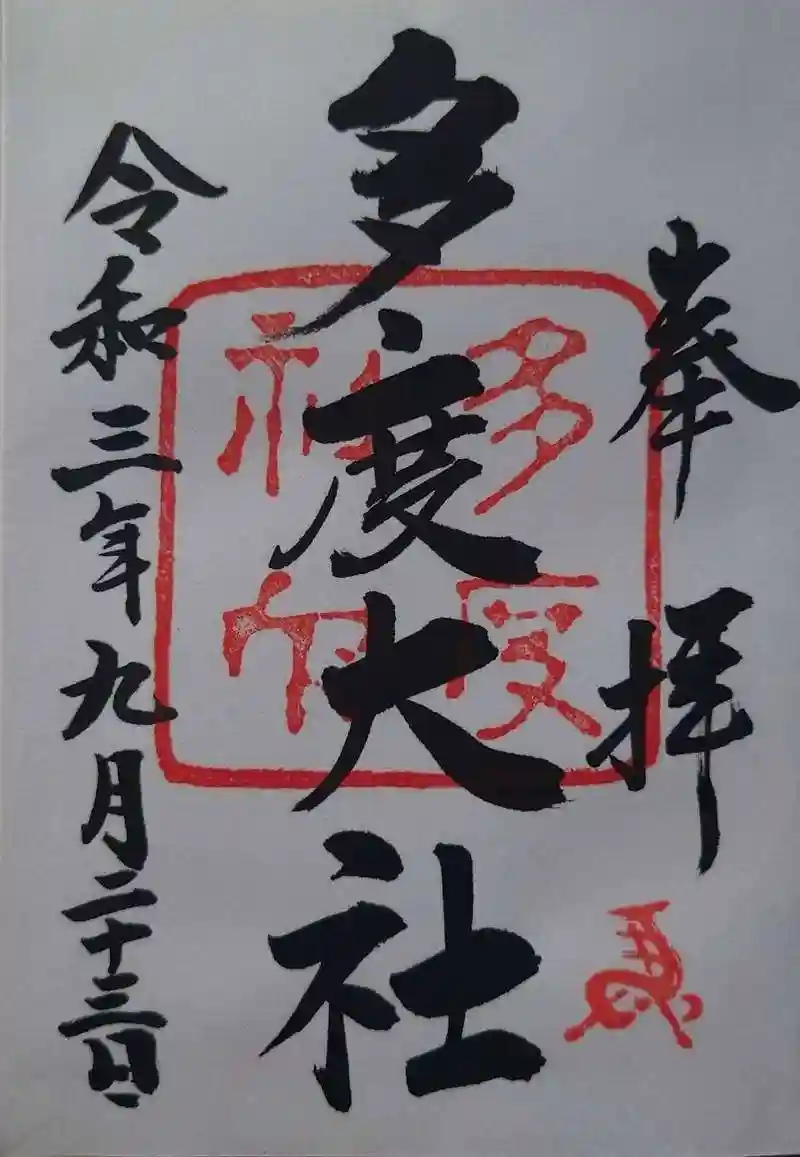 奉拝
多度大社
令和三年九月二十三日
多度
神宮